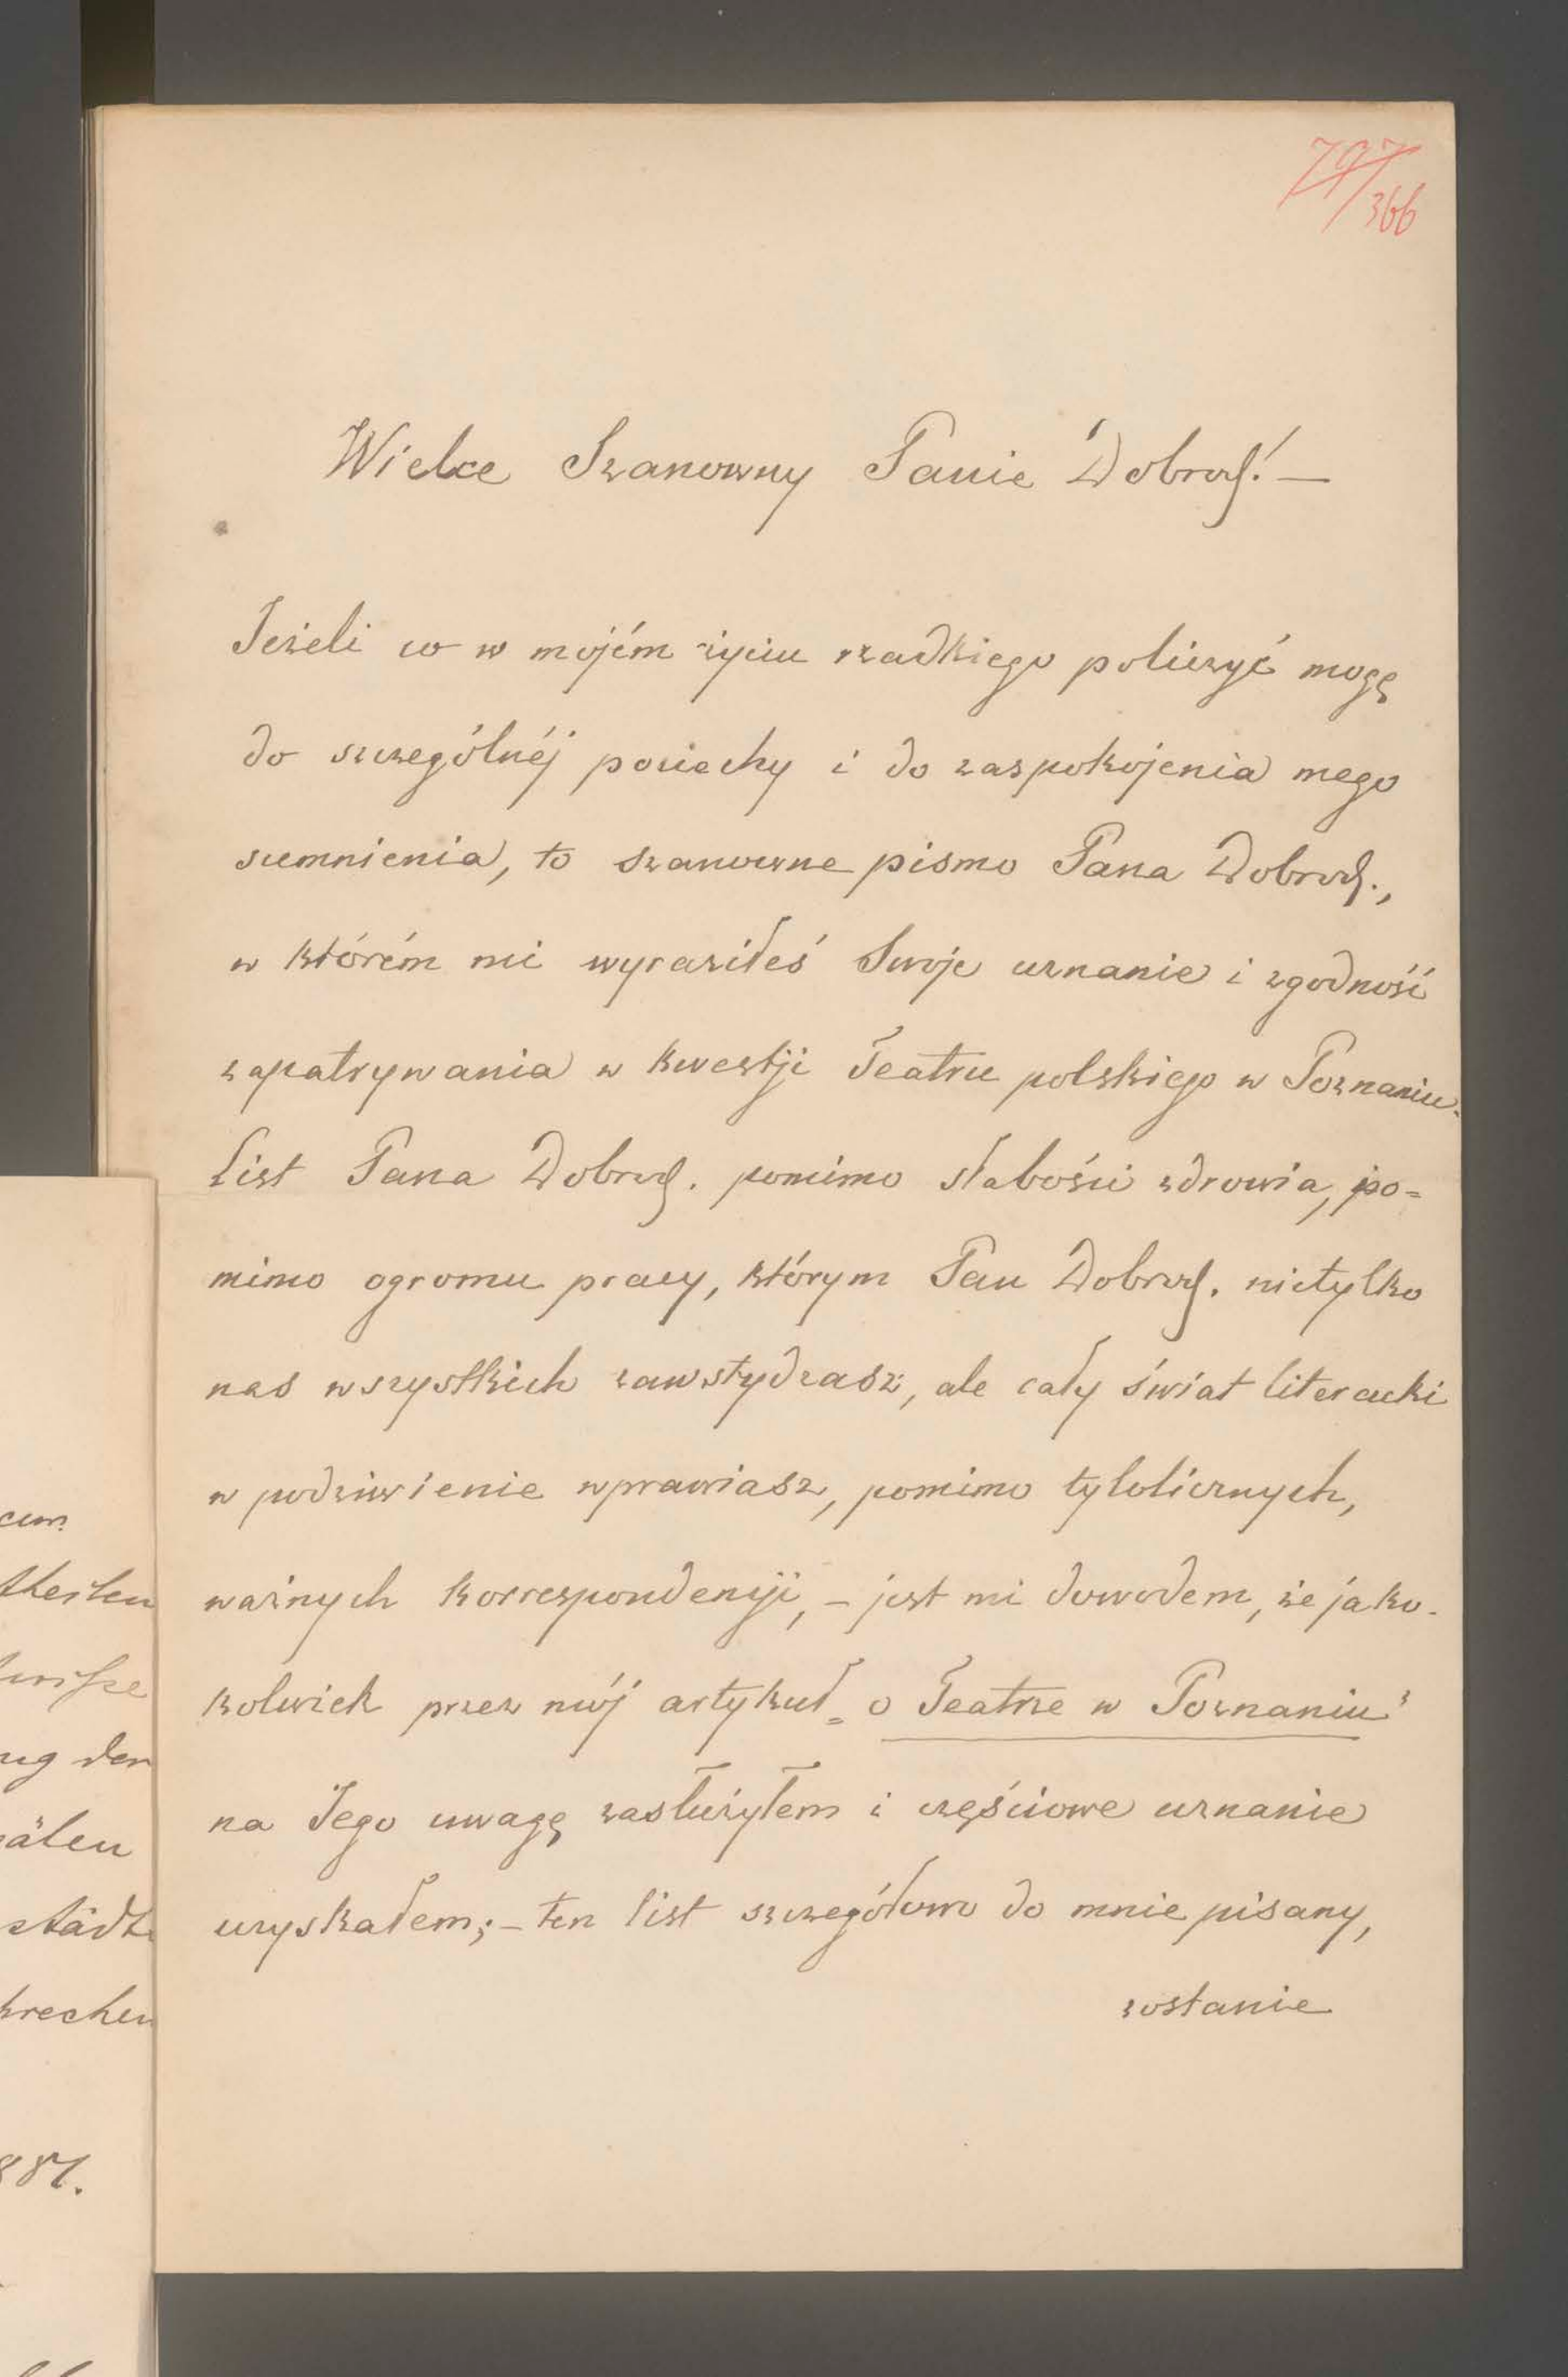 797/366
Wielce Szanowny Panie Dobrodz! —
Jeżeli co w mojém życiu rzadkiego policzyć mogę
do szczególnéj pociechy i do zaspokojenia mego
sumnienia, to szanowne pismo Pana Dobrodz.,
w którém mi wyraziłeś Swoje uznanie i zgodność
zapatrywania w kwestji Teatru polskiego w Poznaniu.
List Pana Dobrodz. pomimo słabości zdrowia, po=
mimo ogromu pracy, którym Pan Dobrodz. nietylko
nas wszystkich zawstydzasz, ale cały świat literacki
w podziwienie wprawiasz, pomimo tylolicznych,
ważnych korrespondencji, – jest mi dowodem, że jako-
kolwiek przez mój artykuł „o Teatrze w Poznaniu"
na Jego uwagę zasłużyłem i częściowe uznanie
uzyskałem; – ten list szczegółowo do mnie pisany,
zostanie
theilen
ug der
älen
städt
brechen